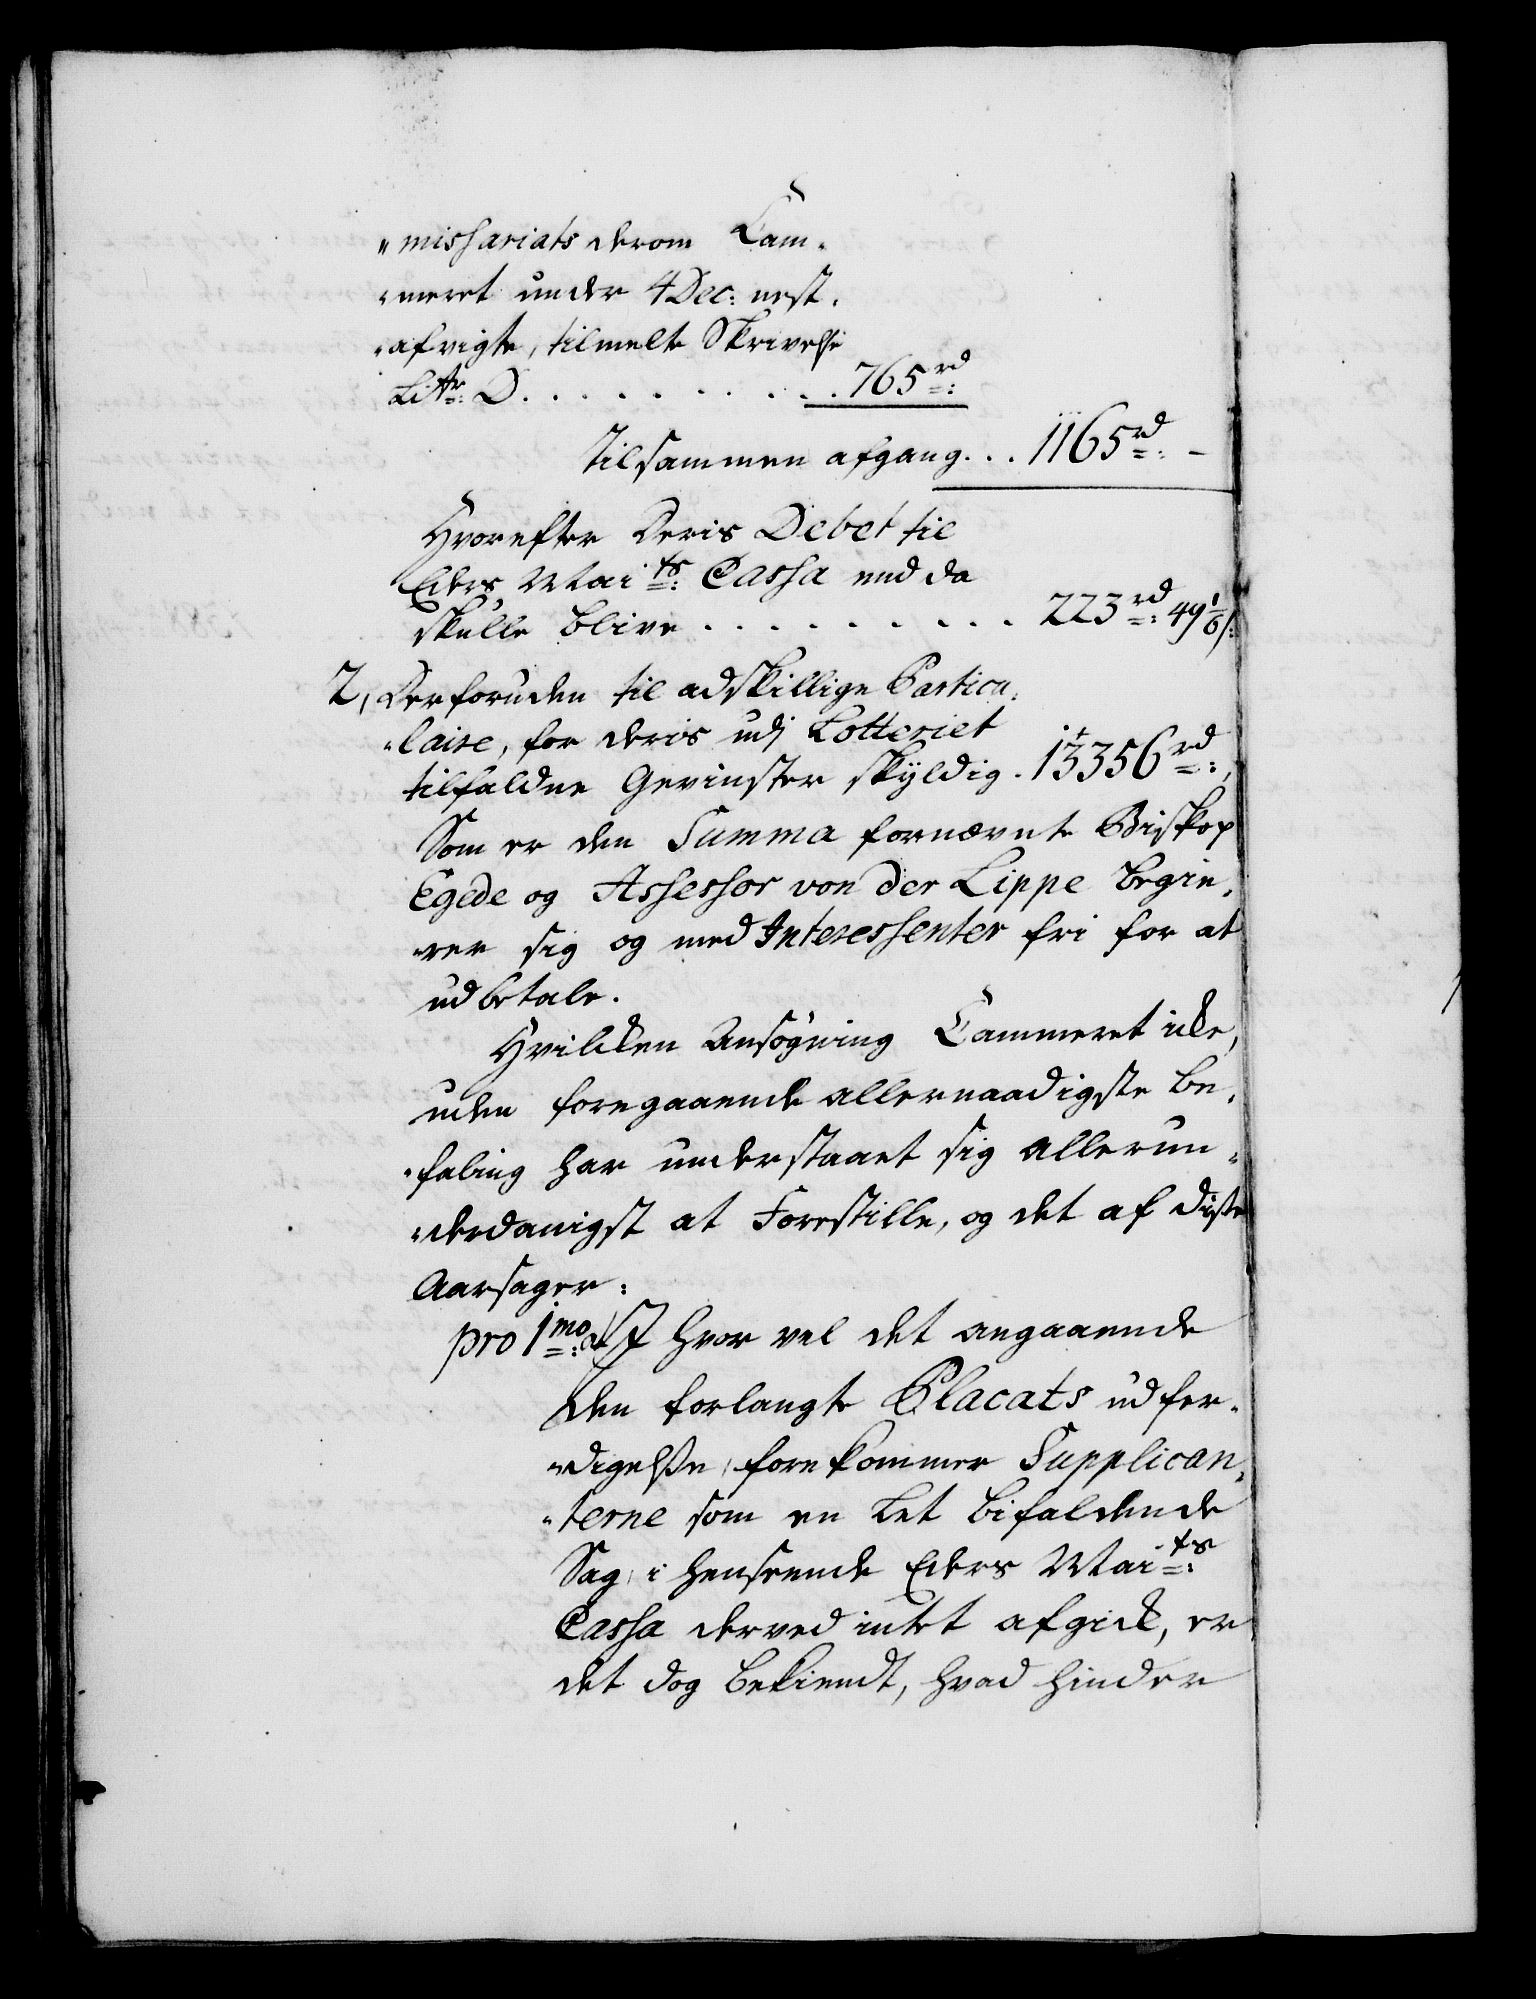 "missariats derom Cam-
"meret under 4 Dec: nest-
"afvigte, tilmelte Skrivelse
Litr: D. . . . . . . . . . . 765 rd:
tilsammen afgang. . . 1165 rd: -
Hvorefter Deris Debet til
Eders Mai ts: Cassa end da
skulle blive . . . . . . . . . . 223 rd: 49 1/6 s:
2, Desforuden til adskillige Particu-
"laire, for deris udj Lotteriet
tilfaldne Gevinster skyldig. 13356 rd:,
Som er den Summa fornævnte Biskop
Egede og Assessor von der Lippe begie-
"rer sig og med Interessenter fri for at
udbetale.
Hvilcken Ansøgning Cammeret icke,
uden foregaaende allernaadigste be-
"faling har understaaet sig allerun-
"derdanigst at Forestille, og det af disse
Aarsager:
pro 1mo: At hvor vel det angaaende
den forlangte Placats udfer-
"digelsse, forekommer Supplican-
"terne som en let bifaldende
Sag, i henseende Eders Mai ts:
Cassa derved intet afgick, er
det dog bekiendt, hvad hinder